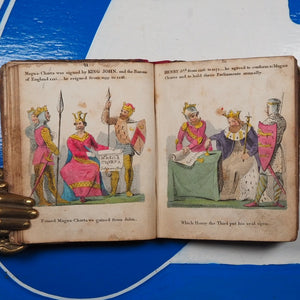 Magna-Charta was signed by KING JOHN, and the Barons
of England 1215...he reigned from 1199 to 1216.
MAGNA
CHARTA
Famed Magna-Charta we gained from John,
HENRY 3rd from 1216 to 1272...he agreed to confirm Magna
Charta and to hold their Parliaments annually.
Which Henry the Third put his seal upon.